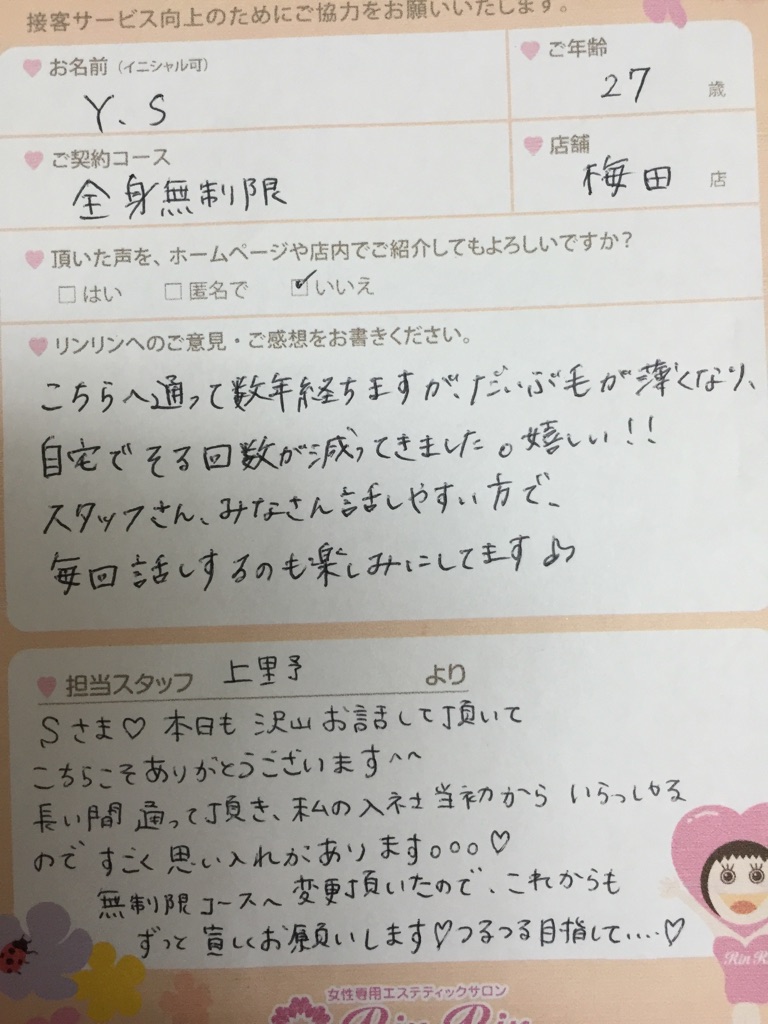 接客サービス向上のためにご協力をお願いいたします。
お名前（イニシャル可）
Y.S
ご年齢
27 歳
ご契約コース
全身無制限
店舗
梅田 店
頂いた声を、ホームページや店内でご紹介してもよろしいですか？
□はい □匿名で ☑いいえ
リンリンへのご意見・ご感想をお書きください。
こちらへ通って数年経ちますが、だいぶ毛が薄くなり、
自宅でそる回数が減ってきました。嬉しい！！
スタッフさん、みなさん話しやすい方で、
毎回話しするのも楽しみにしてます♪
担当スタッフ 上野 より
Sさま♡ 本日も 沢山お話して頂いて
こちらこそありがとうございます^^
長い間 通って頂き、私の入社当初から いらっしゃる
ので すごく 思い入れがあります。。。♡
無制限コースへ 変更頂いたので、これからも
ずっと 宜しくお願いします♡つるつる目指して‥‥♡
Rin R
女性専用エステティックサロン
Rin Rin